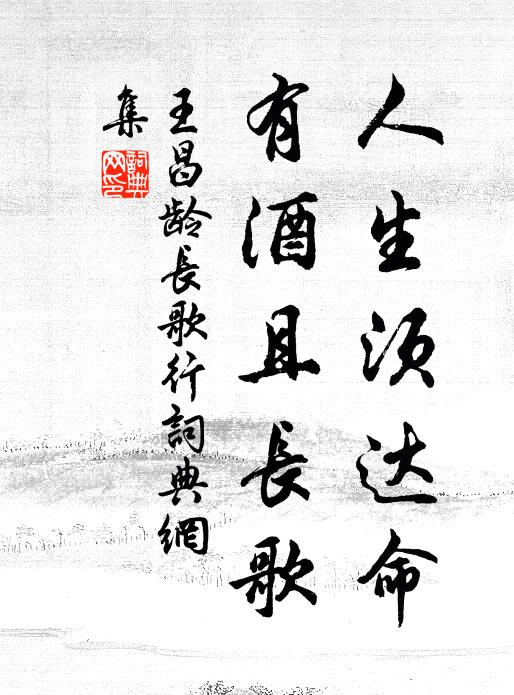 人生须达命
有酒且長歌
王昌龄長歌行詞典網
集
詞典
网印